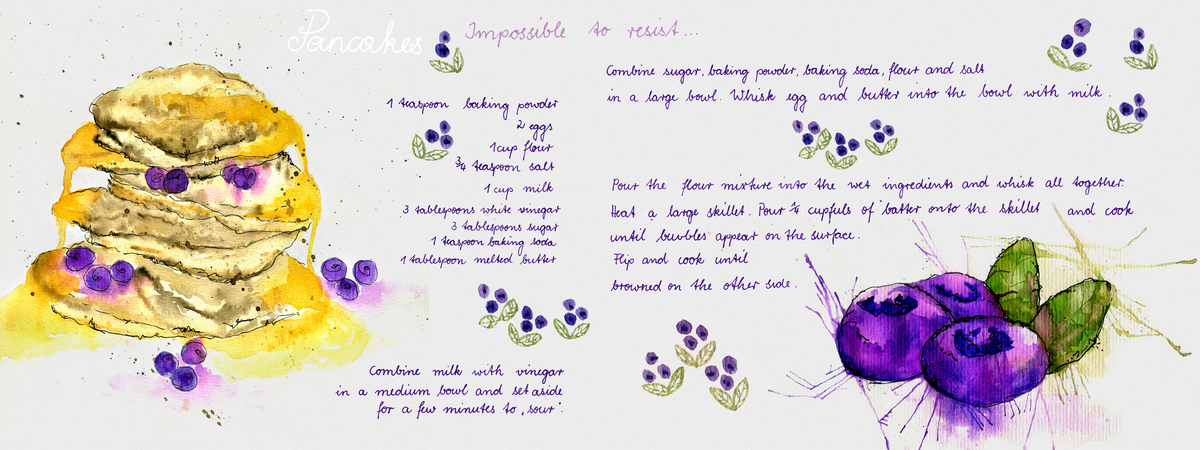 Pancakes
Impossible to resist...
1 teaspoon baking powder
2 eggs
1 cup flour
3/4 teaspoon salt
1 cup milk
3 tablespoons white vinegar
3 tablespoons sugar
1 teaspoon baking soda
1 tablespoon melted butter
Combine milk with vinegar
in a medium bowl and set aside
for a few minutes to „sour“.
Combine sugar, baking powder, baking soda, flour and salt
in a large bowl. Whisk egg and butter into the bowl with milk.
Pour the flour mixture into the wet ingredients and whisk all together.
Heat a large skillet. Pour 1/4 cupfuls of batter onto the skillet and cook
until bubbles appear on the surface.
Flip and cook until
browned on the other side.